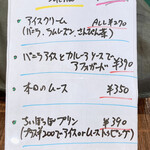 アイスクリーム ALL ¥270
(バニラ、ラムレーズン、
バニラアイスとカルーアソースで
アフォガード ¥390
のムース ¥350
プリン ¥390
(プラス¥200でアイス or ムーストッピング)